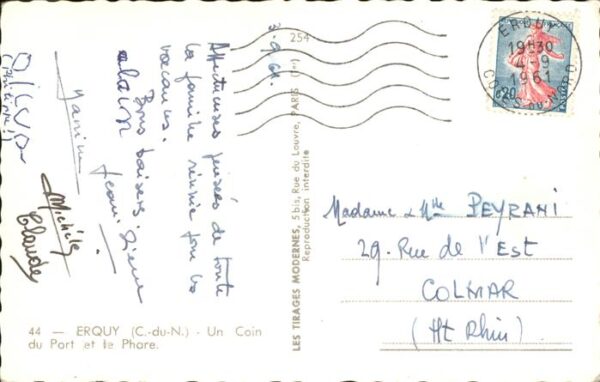 3.9.61.
Affectueuses pensées de toute
la famille réunie pour les
vacances.
Bons baisers.
alain
Jean-Pierre
Janine
Michèle
Claude
44 — ERQUY (C.-du-N.) - Un Coin
du Port et le Phare.
LES TIRAGES MODERNES, 5 bis, Rue du Louvre, PARIS (1er)
Reproduction interdite
254
ERQUY
19H30
4-9
1961
CÔTES-DU-NORD
0,20
Madame & Mlle PEYRANI
29. Rue de l'Est
COLMAR
(Ht Rhin)